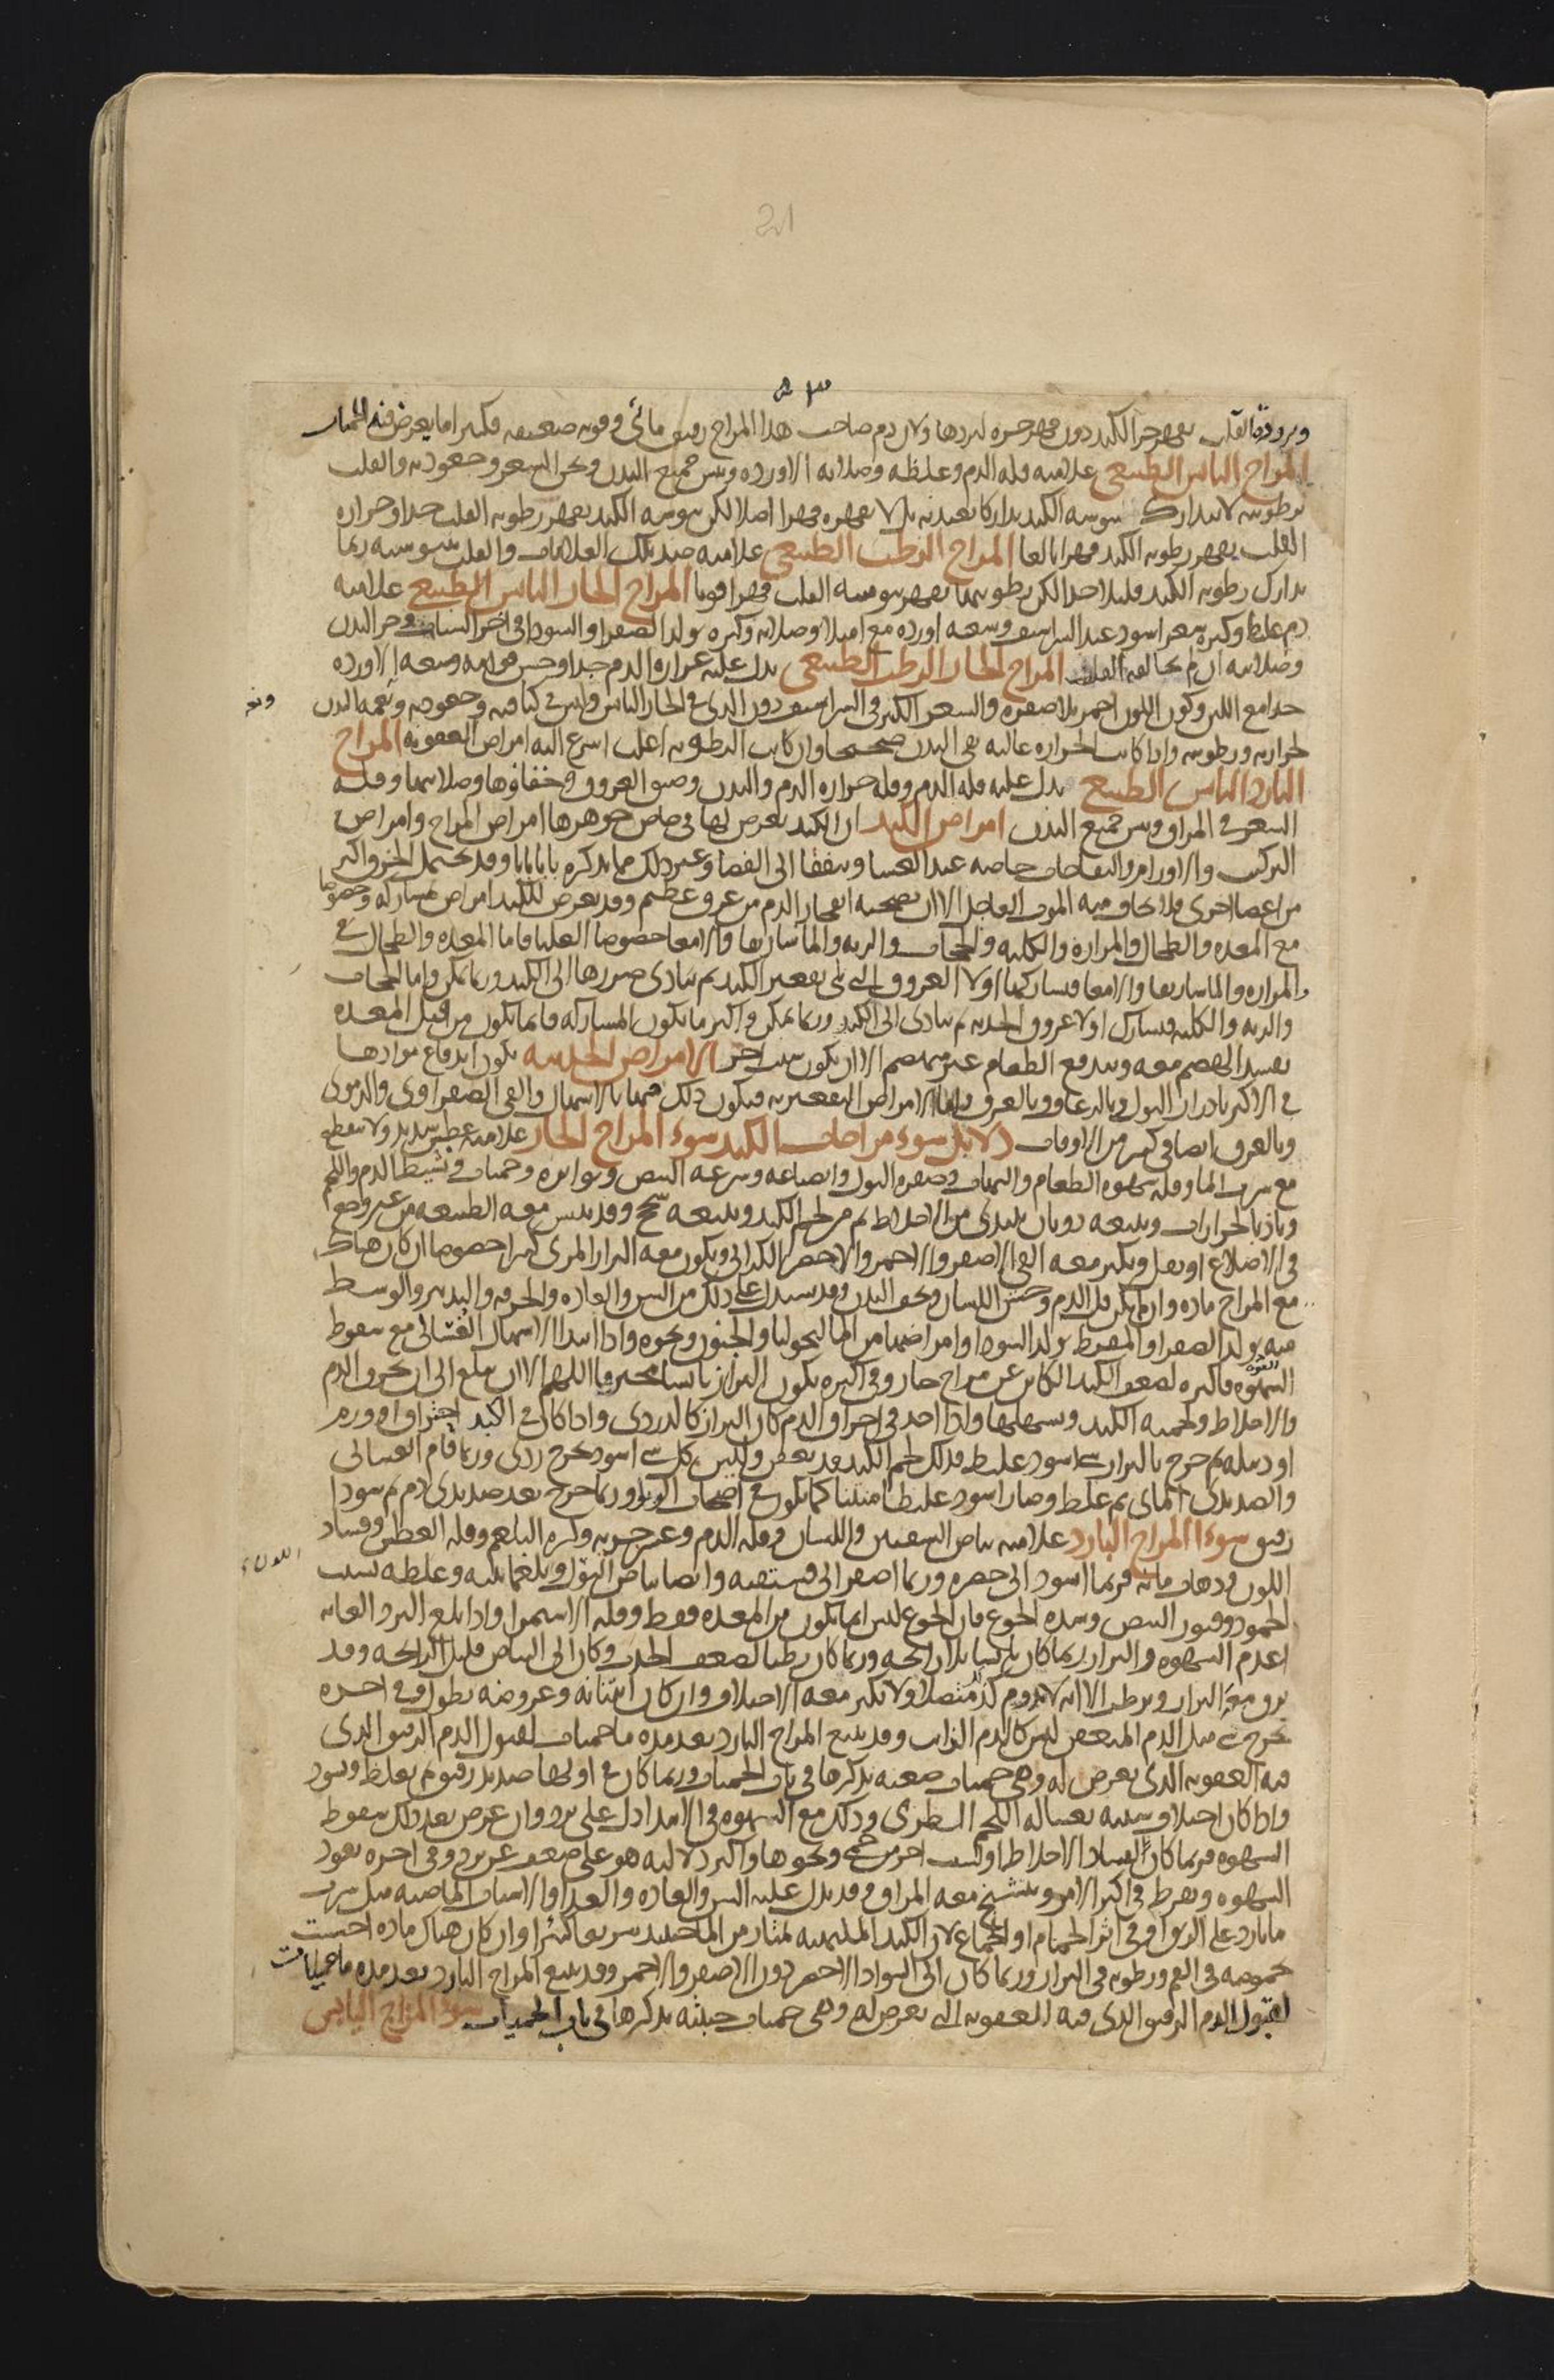 21
وبرودة القلب يقهر حر الكبد دون قهر حره لبردها ولان دم صاحب هذا المزاج رقيق مائى وقوته ضعيفة فكثيرا ما يعرض فيه الحميات
المزاج اليابس الطبيعى علامته قلة الدم وغلظه وصلابة الاوردة ويبس جميع البدن وثخن الشعر وجعودته والقلب
برطوبته لا يتدارك يبوسة الكبد تداركا يعتد به بل لا يقهره قهرا اصلا لكن يبوسة الكبد يقهر رطوبة القلب جدا وحرارة
القلب يقهر رطوبة الكبد قهرا بالغا المزاج الرطب الطبيعى علامته ضد تلك العلامات والقلب بيبوسته ربما
تدارك رطوبة الكبد قليلا جدا لكن رطوبتها يقهر يبوسة القلب قهرا قويا المزاج الحار اليابس الطبيعى علامته
دم غليظ وكثرة شعر اسود عند الشراسيف وسعة اوردة مع امتلا وصلابة وكثرة تولد الصفرا والسودا فى اخر الشباب وحر البدن
وصلابته ان لم يخالفه القلب المزاج الحار الرطب الطبيعى يدل عليه غزارة الدم جدا وحسن قوامه وسعة الاوردة
جدا مع اللين وكون اللون احمر بلا صفرة والشعر الكثير فى الشراسيف دون الذى فى الحار اليابس وليس فى كثافته وجعودته ونعمة البدن
لحرارته ورطوبته واذا كانت الحرارة غالبة بقى البدن صحيحا وان كانت الرطوبة اغلب اسرع اليه امراض العفونة المزاج
البارد اليابس الطبيعى يدل عليه قلة الدم وقلة حرارة الدم والبدن وضيق العروق وخفاؤها وصلابتها وقلة
الشعر فى المراق ويبس جميع البدن امراض الكبد ان الكبد يعرض لها فى خاص جوهرها امراض المزاج وامراض
التركيب والاورام والنفاخات خاصة عند الغشا وينفقا الى الفضا وغير ذلك مما نذكره بابا بابا وقد يحتمل الخرق اكثر
من اعضا اخرى فلا يخاف منه الموت العاجل الا ان يصحبه انفجار الدم من عرق عظيم وقد يعرض للكبد امراض مشاركة وخصوصا
مع المعدة والطحال والمرارة والكلية والحجاب والرية والماساريقا والامعا خصوصا العليا فاما المعدة والطحال
والمرارة والماساريقا والامعا فتشاركها اولا العروق التى تلى تقعير الكبد ثم يتادى ضررها الى الكبد وربما تمكن واما الحجاب
والرية والكلية فيشارك اولا عروق الحدبة ثم يتادى الى الكبد وربما تمكن واكثر ما يكون المشاركة فانما يكون من قبل المعدة
يفسد الهضم معه ويندفع الطعام غير منهضم الا ان يكون سبب اخر الامراض الحدبية يكون اندفاع موادها
فى الاكثر بادرار البول وبالرعاف وبالعرق واما الامراض التقعيرية فيكون ذلك فيها بالاسهال والقى الصفراوى والدموى
وبالعرق ايضا فى كثير من الاوقات دلايل سوء مزاجات الكبد سوء المزاج الحار علامته عطش شديد ولا ينقطع
مع شرب الما وقلة شهوة الطعام والتهاب وصفرة البول وانصباغه وسرعة النبض وتواتره وحميات وتشيط الدم واللحم
وتاذ بالحرارات ويتبعه ذوبان يبتدى من الاخلاط ثم من لحم الكبد ويتبعه سحج وقد ييبس معه الطبيعة من غير وجع
فى الاضلاع او ثقل ويكثر معه القى الاصفر والاحمر والاخضر الكراثى ويكون معه البراز المرى كثيرا خصوصا ان كان هناك
مع المزاج مادة وان لم يكن قل الدم وخشن اللسان ونحف البدن وقد يستدل على ذلك من السن والعادة والحرفة والتدبير والوسط
منه يولد الصفرا والمفرط يولد السودا وامراضها من الماليخوليا والجنون ونحوه واذا ابتدا الاسهال الغسالى مع سقوط
الشهوة فاكثره لضعف الكبد الكائن عن مزاج حار وفى اكثره يكون البراز يابسا محترقا اللهم الا ان يبلغ الى ان يحرق الدم
والاخلاط ولحمية الكبد ويسهلها واذا اخذ فى احراق الدم كان البراز كالدردى واذا كان فى الكبد احتراق او ورم
او دبيلة ثم خرج بالبراز شى اسود غليظ فذلك لحم الكبد قد تعفن وليس كل شى اسود يخرج ردى وربما قام الغسالى
والصديدى المائى ثم غلظ وصار اسود غليظا منتنا كما يكون فى اصحاب الوبا وربما خرج بعد صديدى دم ثم سودا
رقيق سوء المزاج البارد علامته بياض الشفتين واللسان وقلة الدم وعسر جريه وكثرة البلغم وقلة العطش وفساد
اللون وذهاب مائه فربما اسود الى خضرة وربما اصفر الى فستقية وايضا بياض البول وبلغمانيته وغلظه بسبب
الجمود وفتور النبض وشدة الجوع فان الجوع ليس انما يكون من المعدة فقط وقلة الاستمرا واذا بلغ البرد الغاية
اعدم الشهوة والبراز ربما كان يابسا بلا رايحة وربما كان رطبا لضعف الجذب وكان الى البياض قليل الرايحة وقد
يرق معه البراز ويرطب الا انه لا يدوم كذلك متصلا ولا يكثر معه الاختلاف وان كان انتانه وعروضه يطول وفى اخره
يخرج شى مثل الدم المتعفن ليس كالدم الذايب وقد يتبع المزاج البارد بعد مدة ما حميات لقبول الدم الرقيق الذى
فيه العفونة الذى يعرض له وهى حميات صعبة نذكرها فى باب الحميات وربما كان فى اولها صديد رقيق ثم يغلظ ويسود
واذا كان اختلاف شبيه بغسالة اللحم الطرى وذلك مع الشهوة فى الابتدا دل على برد وان عرض بعد ذلك سقوط
الشهوة فربما كان لفساد الاخلاط او لسبب اخر من حمى ونحوها واكثر دلالته هو على ضعف عن برد وفى اخره يعود
الشهوة ويفرط فى اكثر الامر ويتشنج معه المراق وقد يدل عليه السن والعادة والغذا والاسباب الماضية مثل شرب
ما بارد على الريق او فى اثر الحمام او الجماع لان الكبد الملتهبة تمتار من الما حينئذ سريعا كثيرا وان كان هناك مادة احست
بحموضة فى الفم ورطوبة فى البراز وربما كان الى السواد الاخضر دون الاصفر والاحمر وقد يتبع المزاج البارد بعد مدة ما حميات
لقبول الدم الرقيق الذى فيه للعفونة التى يعرض له وهى حميات خبيثة نذكرها فى باب الحميات سوء المزاج اليابس